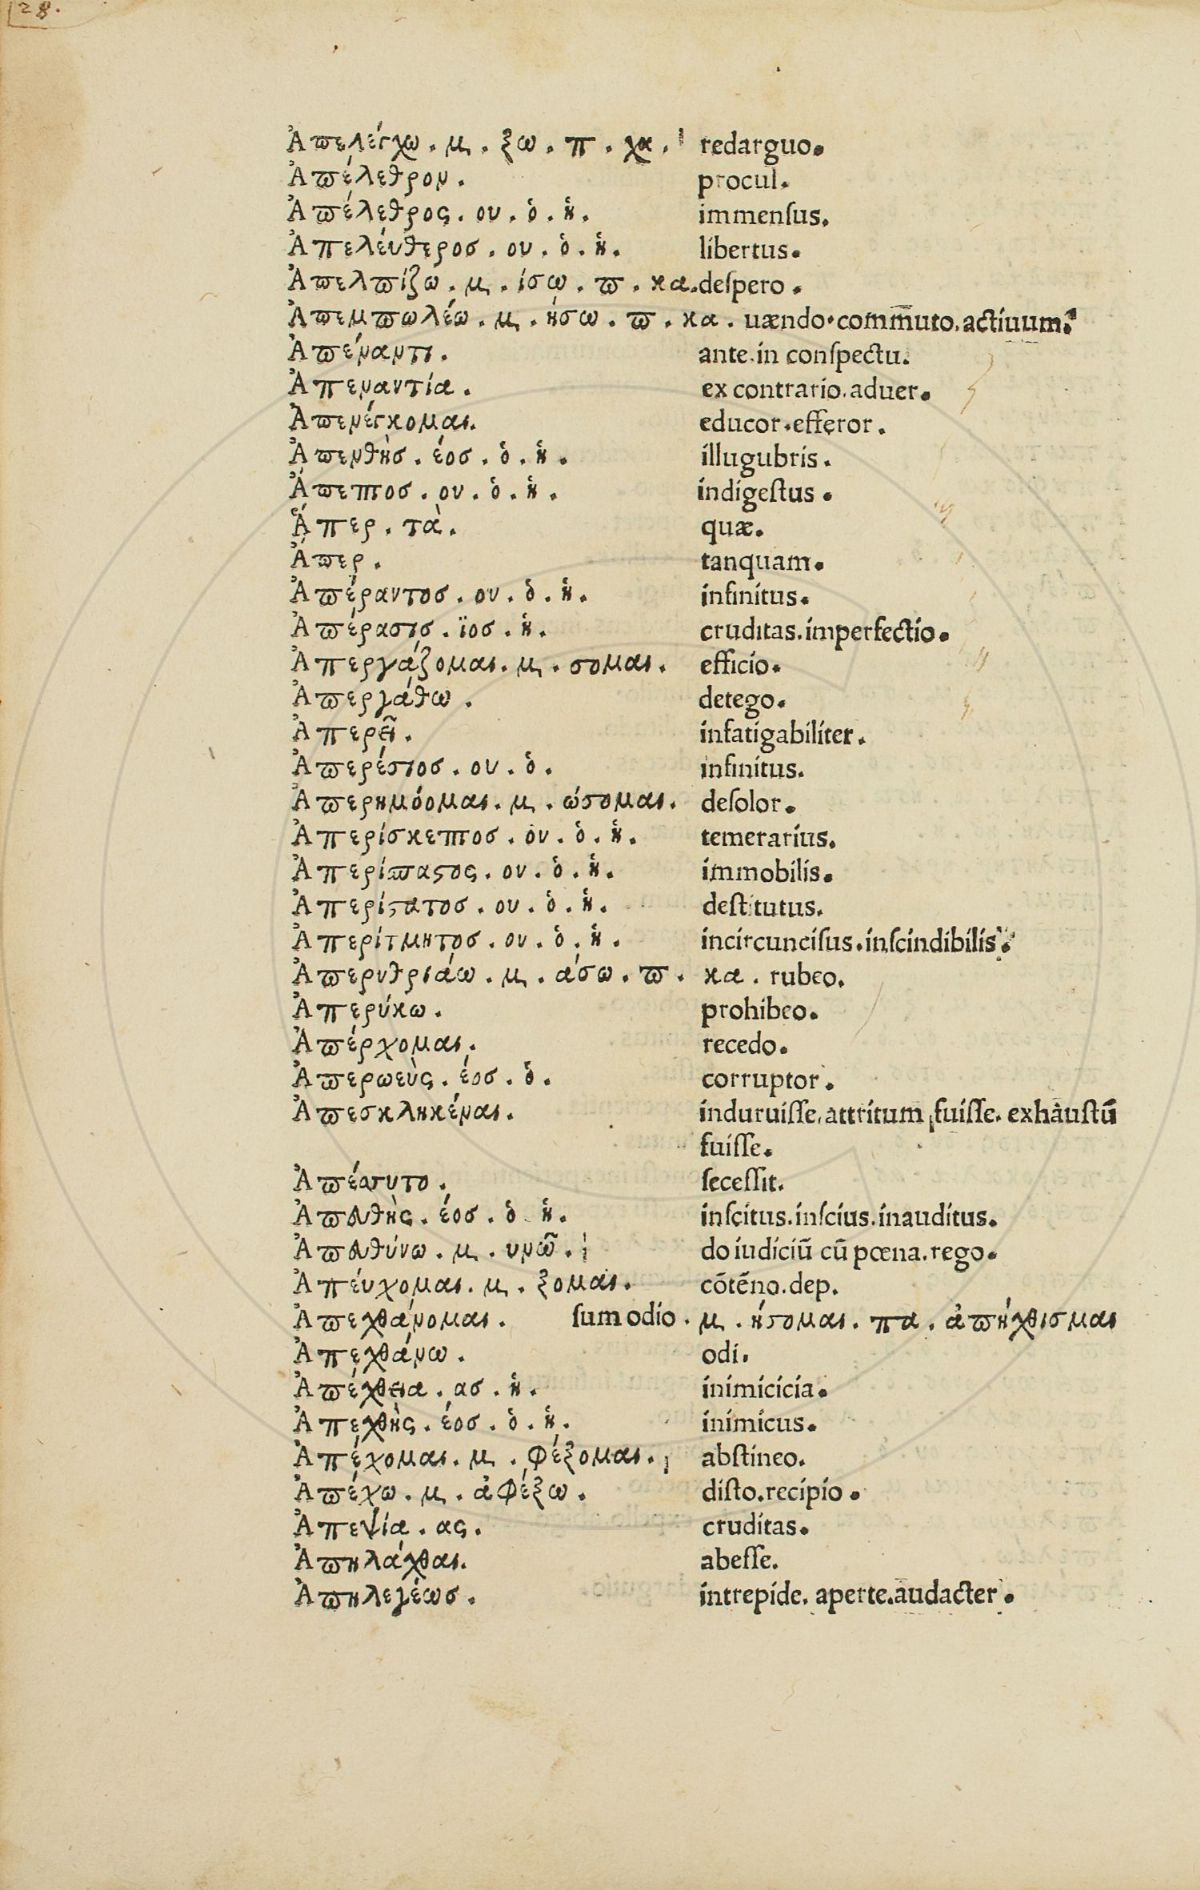 28.
Ἀπελέγχω. μ. ξω. π. χα. redarguo.
Ἀπέλεθρον. procul.
Ἀπέλεθρος. ου. ὁ. ἡ. immensus.
Ἀπελέυθεροσ. ου. ὁ. ἡ. libertus.
Ἀπελπίζω. μ. ίσω. π. κα. despero.
Ἀπεμπωλέω. μ. ήσω. π. κα. uændo. commuto. actiuum.
Ἀπέναντι. ante. in conspectu.
Ἀπεναντία. ex contrario. aduer.
Ἀπενέγκομαι. educor. efferor.
Ἀπενθὴσ. έοσ. ὁ. ἡ. illugubris.
Ἄπεπτοσ. ου. ὁ. ἡ. indigestus.
Ἅπερ. τὰ. quæ.
Ἅπερ. tanquam.
Ἀπέραντοσ. ου. ὁ. ἡ. infinitus.
Ἀπέρασισ. ϊοσ. ἡ. cruditas. imperfectio.
Ἀπεργάζομαι. μ. σομαι. efficio.
Ἀπεργάθω. detego.
Ἀπερεῖ. infatigabiliter.
Ἀπερέσιοσ. ου. ὁ. infinitus.
Ἀπερημόομαι. μ. ώσομαι. desolor.
Ἀπερίσκεπτοσ. ου. ὁ. ἡ. temerarius.
Ἀπερίσπαστος. ου. ὁ. ἡ. immobilis.
Ἀπερίστατοσ. ου. ὁ. ἡ. destitutus.
Ἀπερίτμητοσ. ου. ὁ. ἡ. incircuncisus. inscindibilis.
Ἀπερυθριάω. μ. άσω. π. κα. rubeo.
Ἀπερύκω. prohibeo.
Ἀπέρχομαι. recedo.
Ἀπερωεὺς. έοσ. ὁ. corruptor.
Ἀπεσκληκέναι. induruisse. attritum fuisse. exhaustū
fuisse.
Ἀπέσσυτο. secessit.
Ἀπευθὴς. έοσ. ὁ. ἡ. inscitus. inscius. inauditus.
Ἀπευθύνω. μ. υνῶ. do iudiciū cū pœna. rego.
Ἀπέυχομαι. μ. ξομαι. cōtēno. dep.
Ἀπεχθάνομαι. sum odio. μ. ήσομαι. πα. ἀπήχθισμαι
Ἀπεχθάνω. odi.
Ἀπέχθεια. ασ. ἡ. inimicicia.
Ἀπεχθὴς. έοσ. ὁ. ἡ. inimicus.
Ἀπέχομαι. μ. φέξομαι. abstineo.
Ἀπέχω. μ. ἀφέξω. disto. recipio.
Ἀπεψία. ας. cruditas.
Ἀπηλάχθαι. abesse.
Ἀπηλεγέωσ. intrepide. aperte. audacter.